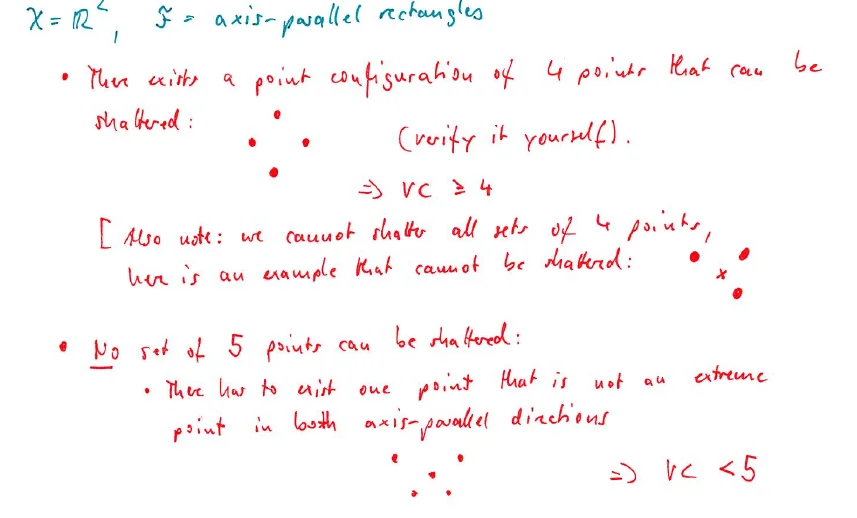 X = ℝ², F = axis-parallel rectangles
• There exists a point configuration of 4 points that can be
shattered:
(verify it yourself).
=> VC ≥ 4
[ Also note: we cannot shatter all sets of 4 points,
here is an example that cannot be shattered:
x
• No set of 5 points can be shattered:
• There has to exist one point that is not an extreme
point in both axis-parallel directions
=> VC < 5